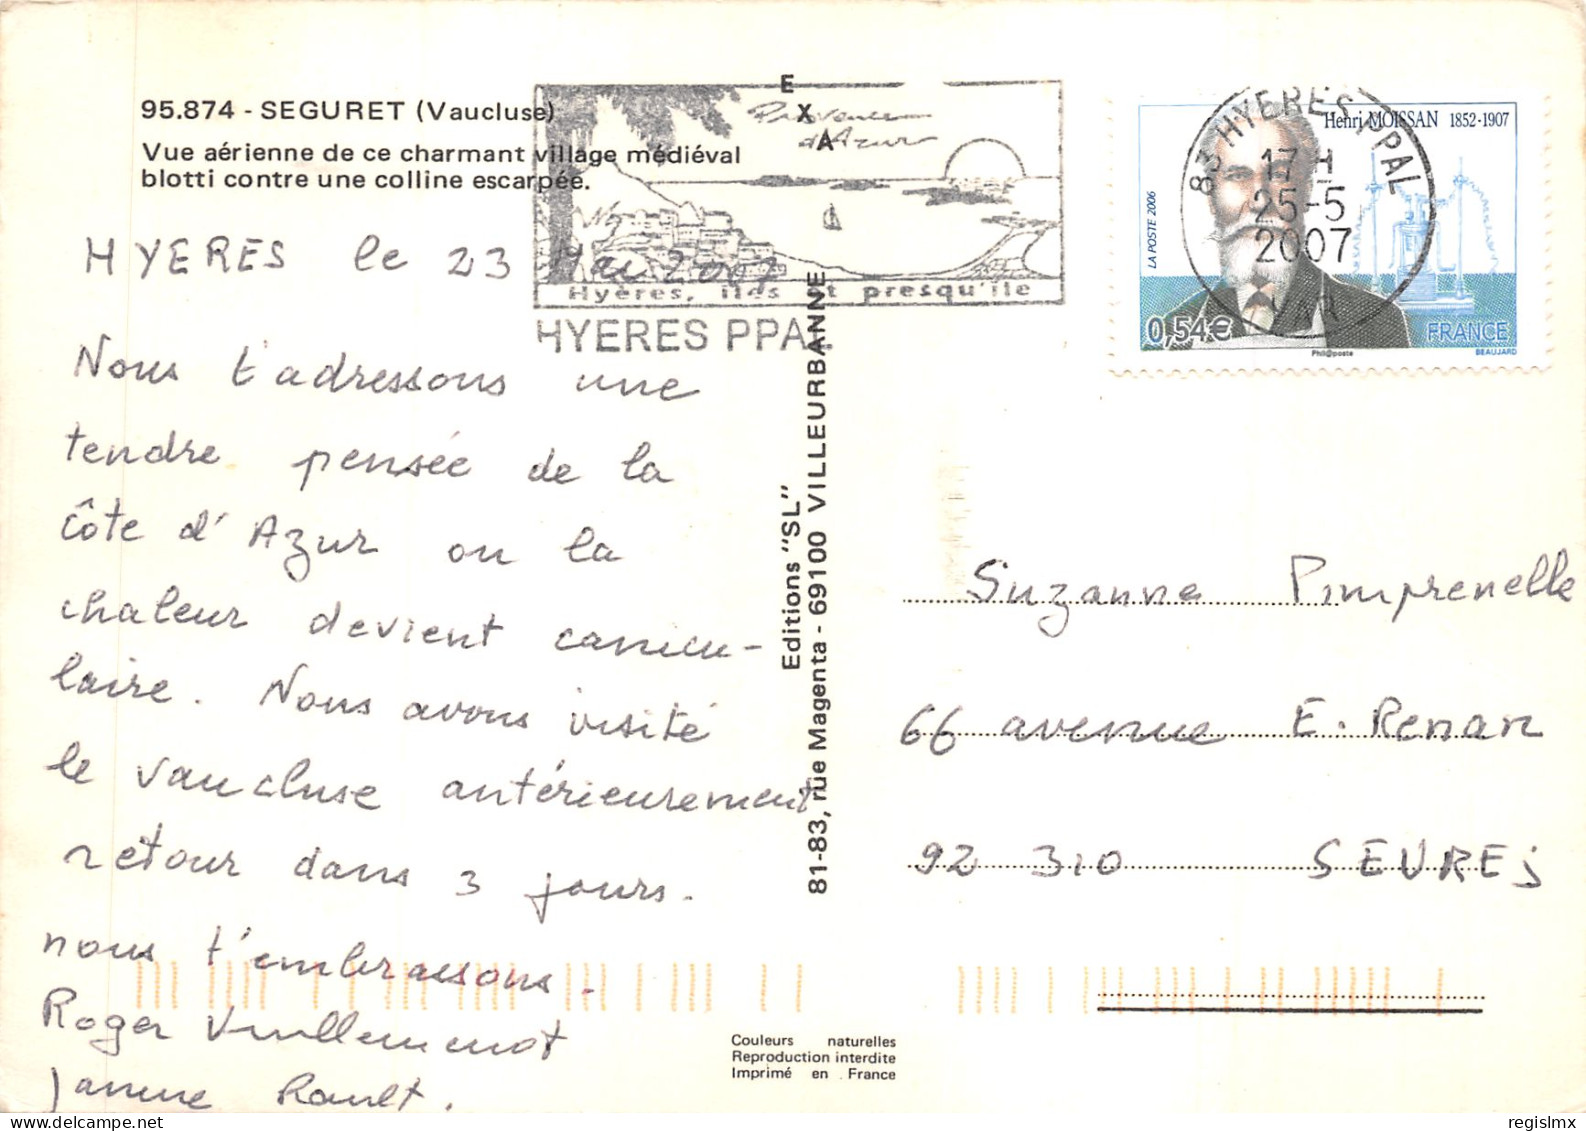 95.874 - SEGURET (Vaucluse)
Vue aérienne de ce charmant village médiéval
blotti contre une colline escarpée.
HYERES le 23 Mai 2007
Nous t'adressons une
tendre pensée de la
côte d'Azur ou la
chaleur devient canicu-
laire. Nous avons visité
le vaucluse antérieurement
retour dans 3 jours.
nous t'embrassons.
Roger Vuillemenot
Janine Rault.
EXA
Provence
d'Azur
Hyères, îles et presqu'île
HYERES PPAL
Editions "SL"
81-83, rue Magenta - 69100 VILLEURBANNE
Couleurs naturelles
Reproduction interdite
Imprimé en France
Henri MOISSAN 1852-1907
LA POSTE 2006
0,54€
FRANCE
Phil@poste
BEAUJARD
83 HYERES PPAL
17 H
25-5
2007
VAR
Suzanne Pimprenelle
66 avenue E. Renan
92 310 SEVRES
regislmx